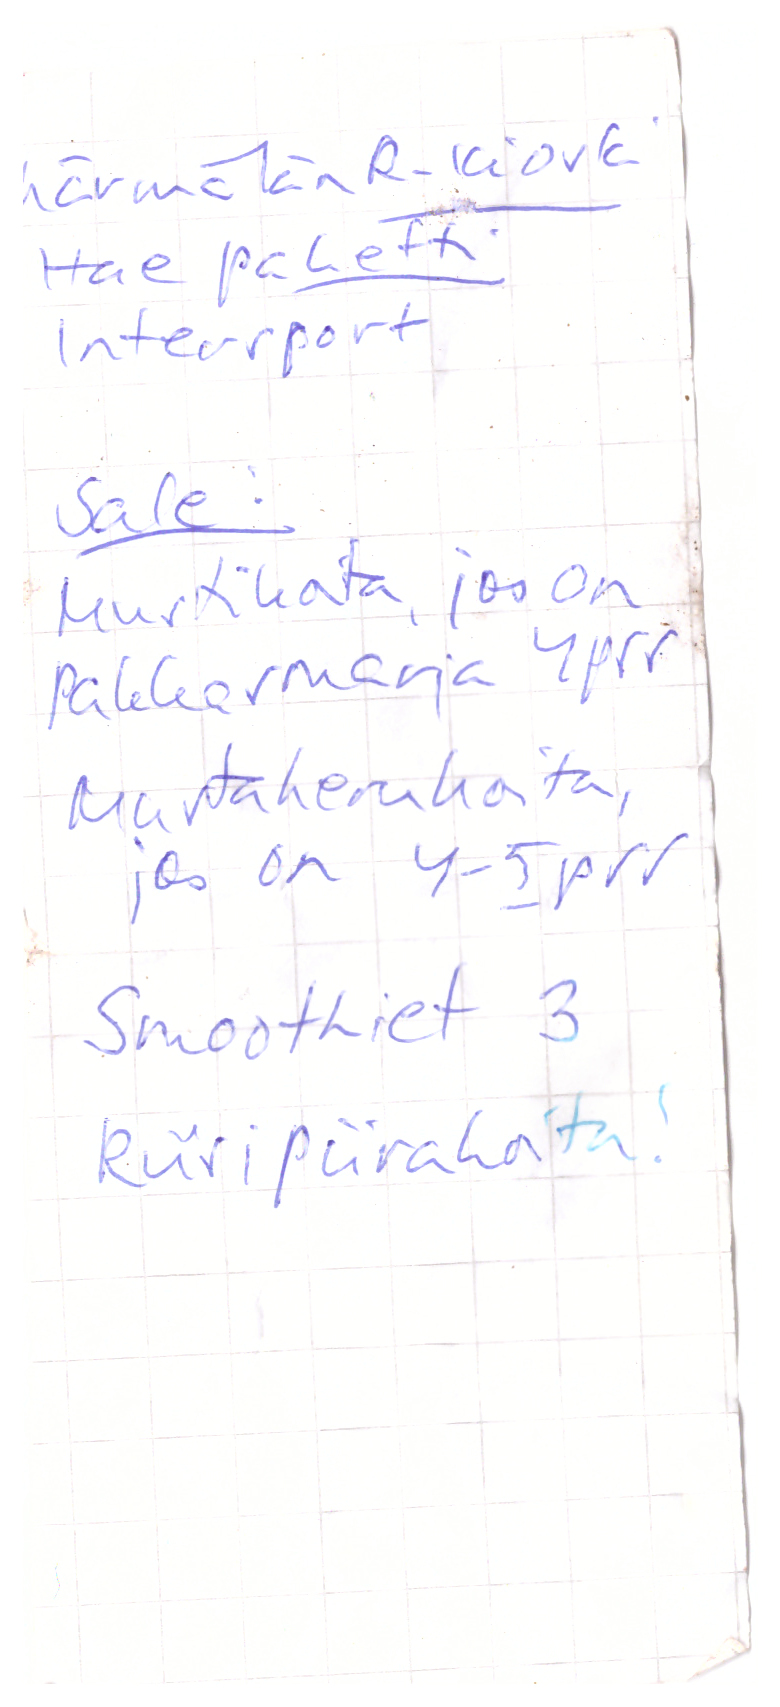 Härmälän R-kioski
Hae paketti
Intersport
Sale:
Mustikoita, jos on
pakkasmarja 4prs
Mustaherukoita,
jos on 4-5prs
Smoothiet 3
Riisipiirakoita!